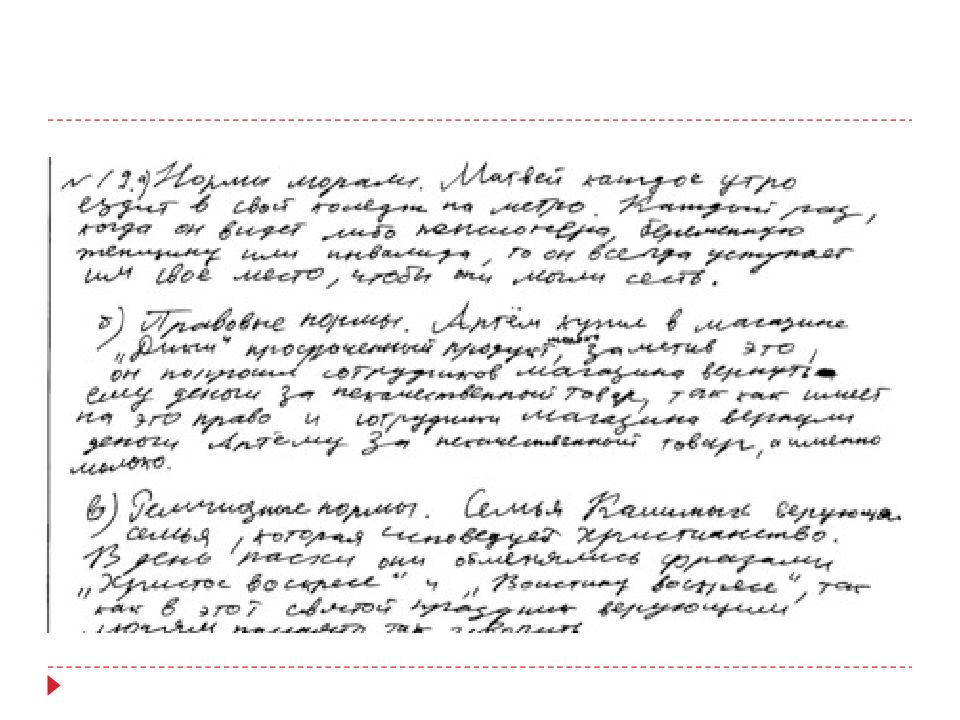 № 19. а) Нормы морали. Матвей каждое утро
ездит в свой коледж на метро. Каждый раз,
когда он видет либо пенсионера, беременную
женщину или инвалида, то он всегда уступает
им своё место, чтобы они могли сесть.
б) Правовые нормы. Артём купил в магазине
„Дикси“ просроченный продукт молоко, заметив это,
он попросил сотрудников магазина вернуть
ему деньги за некачественный товар, так как имеет
на это право и сотрудники магазина вернули
деньги Артёму за некачественный товар, а именно
молоко.
в) Религиозные нормы. Семья верующая
семья, которая исповедует Христианство.
В день пасхи они обменялись фразами
„Христос воскресе“ и „Воистину воскресе“, так
как в этот святой праздник верующим
людям принято так говорить